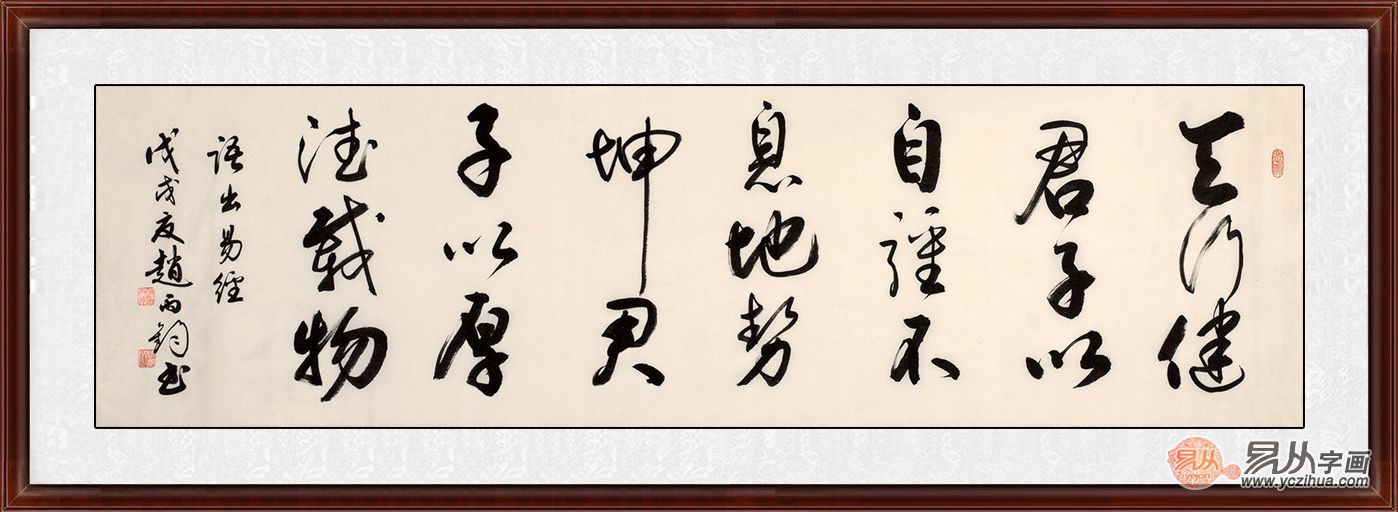 天行健
君子以
自彊不
息地势
坤君
子以厚
德載物
語出易經
戊戌夏趙丙鈞书
易从
易从字画
www.yczihua.com